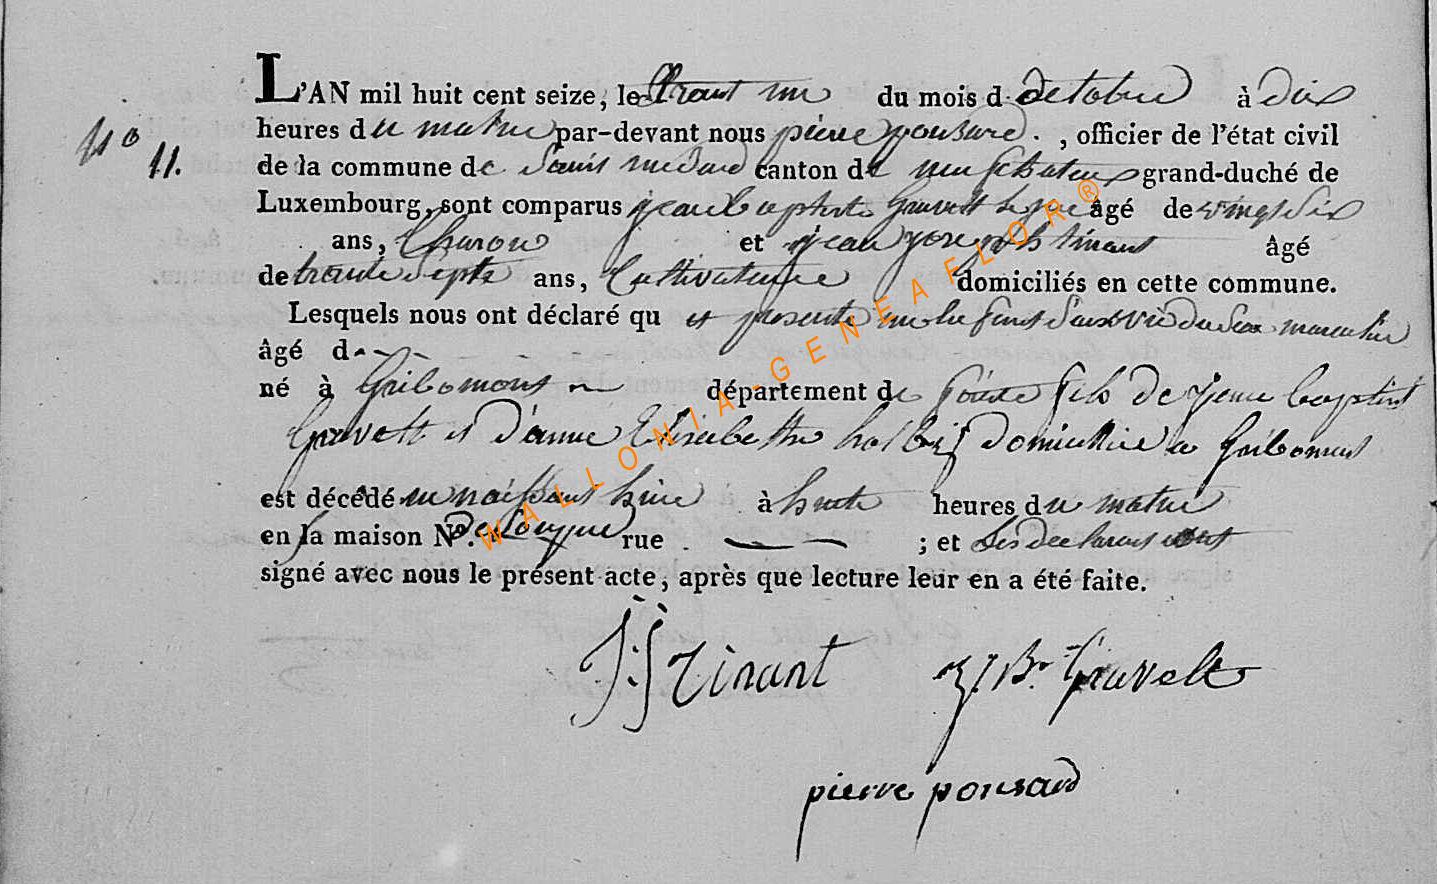 L'AN mil huit cent seize, le trant un du mois d'octobre à dix
N° 11.
heures du matin par-devant nous pierre ponsard. , officier de l'état civil
de la commune de Saint medard canton de neufchateau grand-duché de
Luxembourg, sont comparus jean baptiste Gravelt âgé de vingt six
ans, Charon et jean joseph tinant âgé
de trante septe ans, Cultivateure domiciliés en cette commune.
Lesquels nous ont déclaré qu et presenté un enfant sans vie du sexe masculin
âgé d
né à Gribomont département de fils de jean baptist
Gravelt et d'anne Elisabethe domicillié a Gribomont
est décédé en naissant hier à huite heures du matin
en la maison N°. rue ; et les declarant ont
signé avec nous le présent acte, après que lecture leur en a été faite.
J:J Tinant J Bt Gravelt
pierre ponsard
WALLONIA-GENEAFLOR®